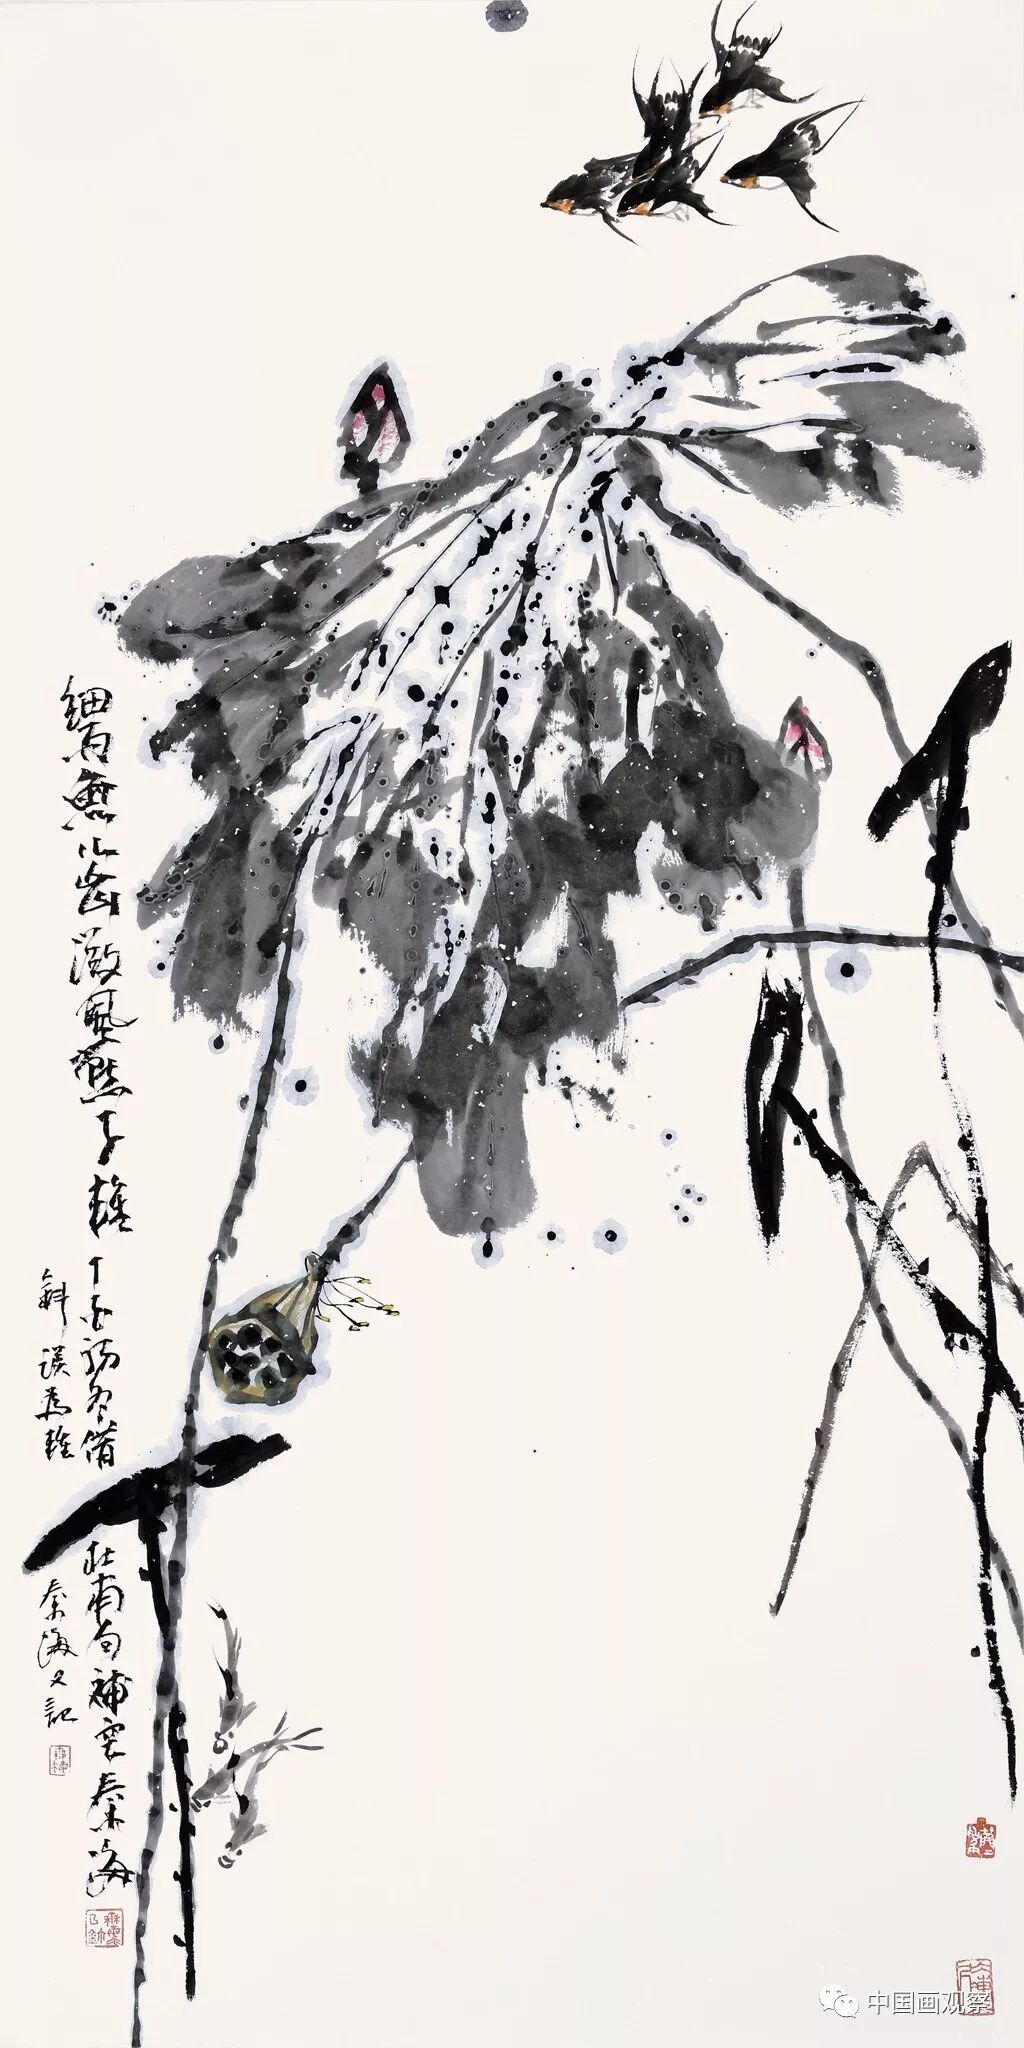 細雨魚兒出微風燕子 丁酉初冬借 杜甫句補 秦海
斜誤為 秦海又記
中国画观察